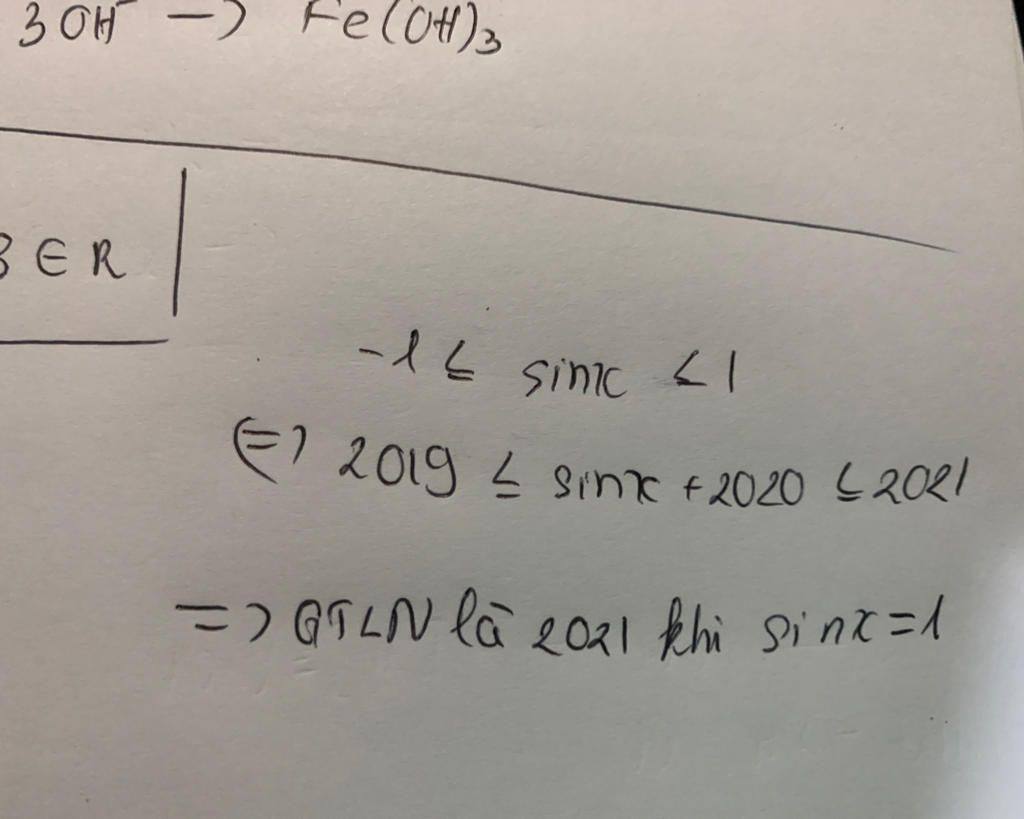 3 OH⁻ → Fe(OH)₃
∈ R
-1 ≤ sinx ≤ 1
⇔ 2019 ≤ sinx + 2020 ≤ 2021
=> GTLN là 2021 khi sinx = 1